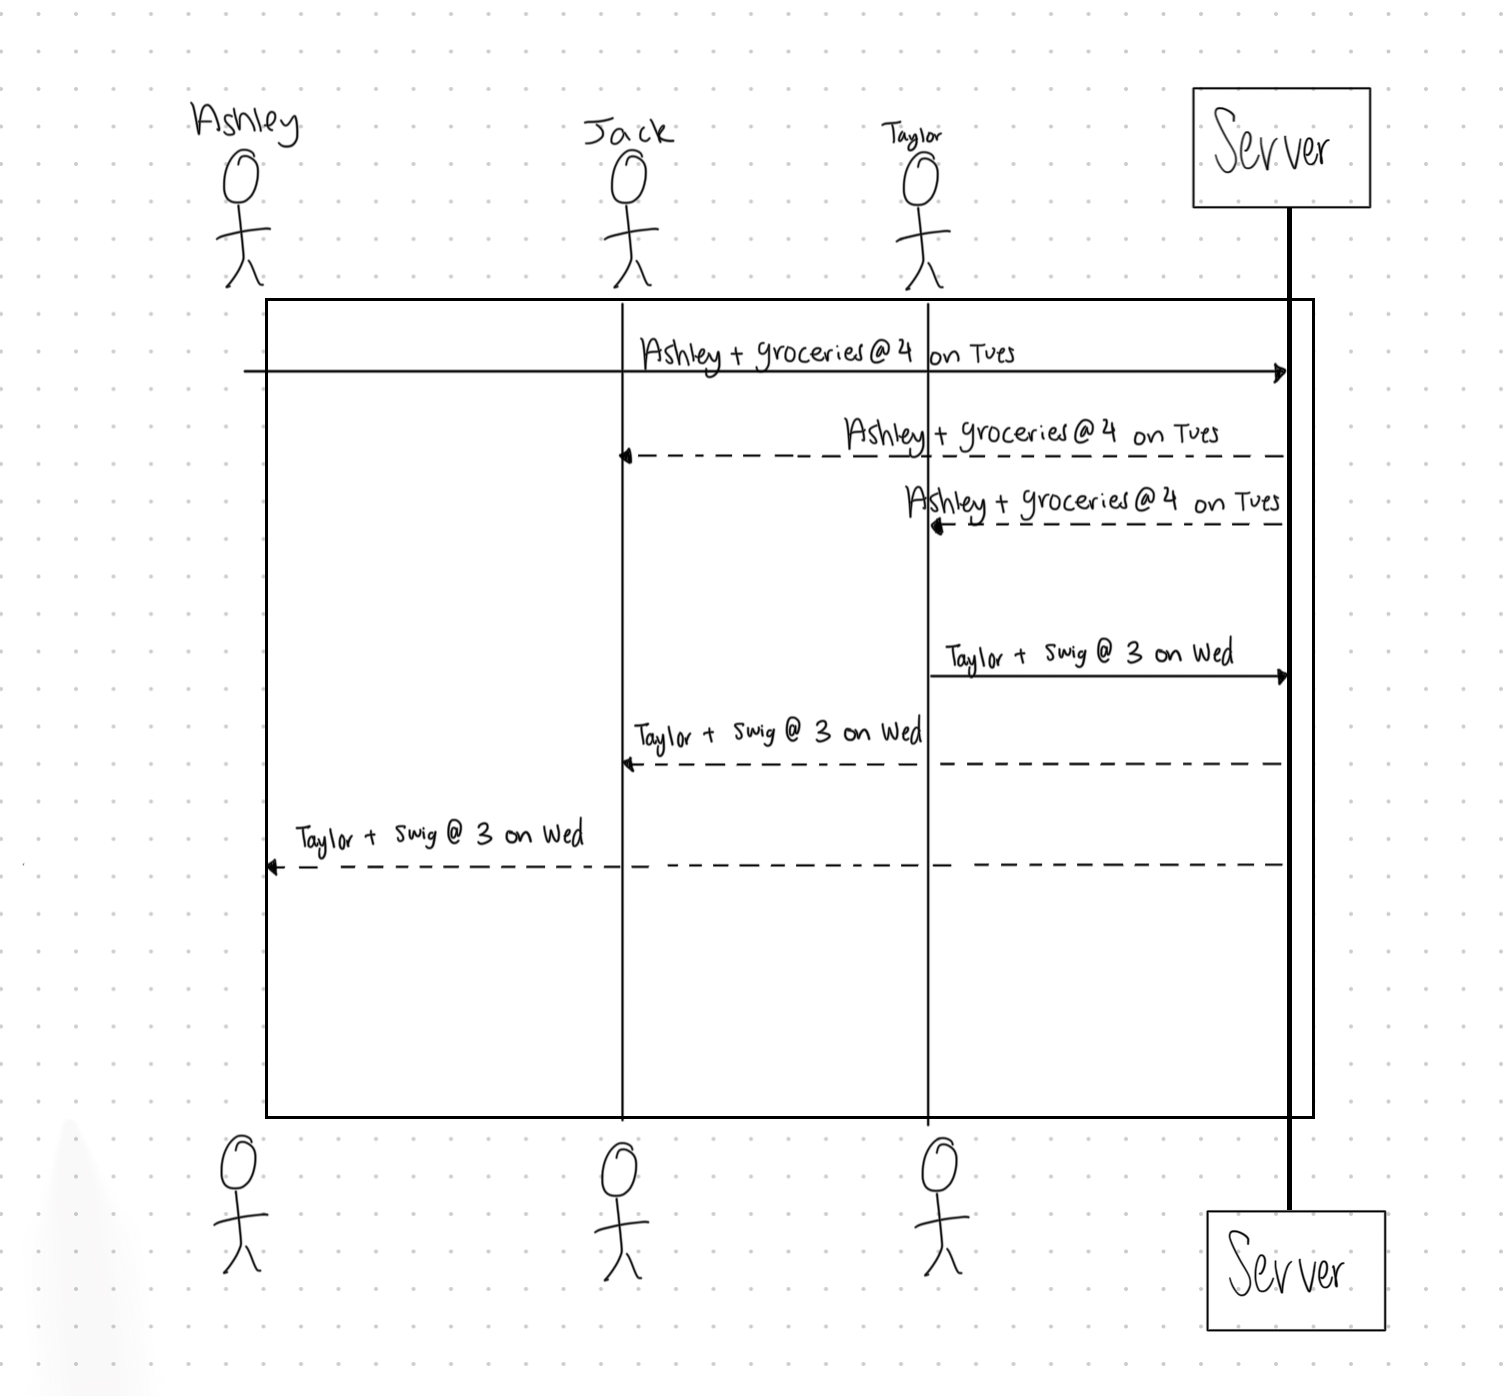 Ashley
Jack
Taylor
Server
Ashley + groceries @ 4 on Tues
Ashley + groceries @ 4 on Tues
Ashley + groceries @ 4 on Tues
Taylor + swig @ 3 on Wed
Taylor + swig @ 3 on Wed
Taylor + swig @ 3 on Wed
Server